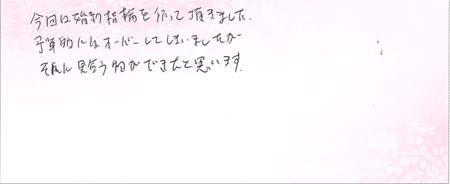 今回は婚約指輪を作って頂きました。
予算的にはオーバーしてしまいましたが
それに見合う物ができたと思います。